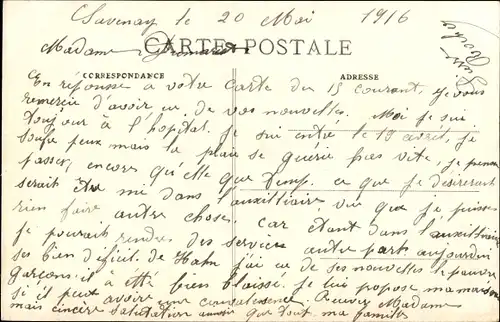 Savenay le 20 Mai 1916
Madame
CARTE POSTALE
CORRESPONDANCE
ADRESSE
En réponsse a votre Carte du 15 courant, je vous
remercie d'avoir eu de vos nouvelles. Moi je sui
toujour à l'hopital, je sui entré le 19 avril, je
soufre peux mais la plai se guérie pas vite, je
passer, encore qu'elle que temp. ce que je désirerait
serait être mi dans l'auxilliaire vu que je puisse
rien faire autre chose. Car étant dans l'auxilliaire
je pourait rendre des service autre part aujourdui
ses bien dificil. de Hahn j'ai eu de ses nouvelles le pauvre
garçons il à été bien blaissé. Je lui propose ma maison
si il peux avoire une convalesence. Recevez Madame
mais sincère salutation que tout ma familles